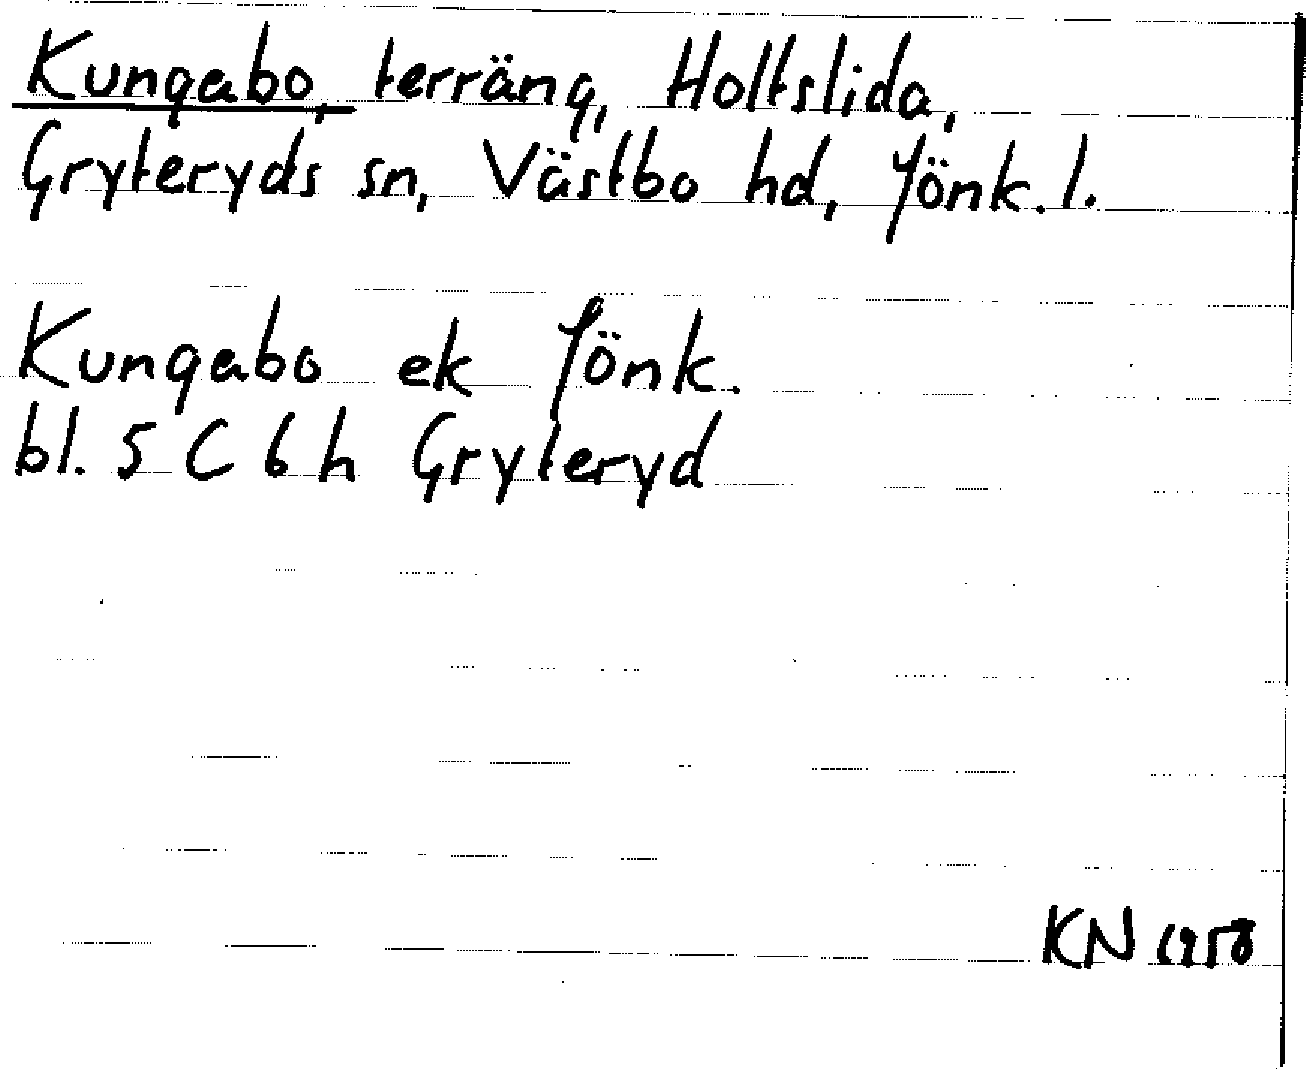 Kungabo, terräng, Holtslida,
Gryteryds sn, Västbo hd, Jönk. l.
Kungabo ek Jönk.
bl. 5 C 6 h Gryteryd
KN 1958